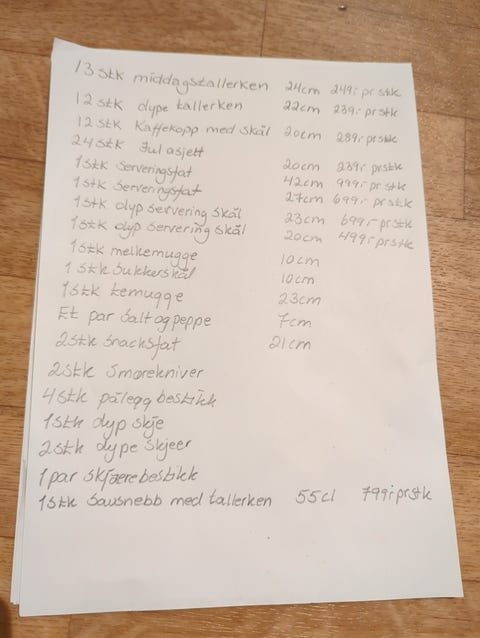 13 stk middagstallerken 24cm 249,- pr stk
12 stk dype tallerken 22cm 239,- pr stk
12 stk Kaffekopp med skål 20cm 289,- pr stk
24 stk Jul asjett 20cm 239,- pr stk
1 stk serveringsfat 42cm 999,- pr stk
1 stk serveringsfat 27cm 699,- pr stk
1 stk dyp servering skål 23cm 699,- pr stk
1 stk dyp servering skål 20cm 499,- pr stk
1 stk melkemugge 10cm
1 stk sukkerskål 10cm
1 stk temugge 23cm
Et par salt og peppe 7cm
2 stk snacksfat 21cm
2 stk smørekniver
4 stk pålegg bestikk
1 stk dyp skje
2 stk dype skjeer
1 par skjærebestikk
1 stk sausnebb med tallerken 55cl 799,- pr stk